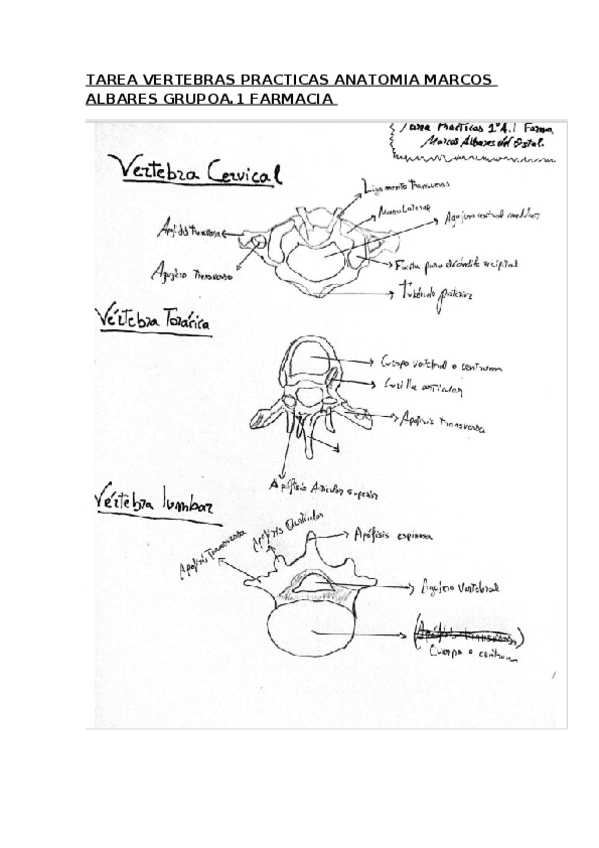 TAREA VERTEBRAS PRACTICAS ANATOMIA MARCOS
ALBARES GRUPOA.1 FARMACIA
Tarea Practicas 1ºA.1 Farma
Marcos Albares del Ostal.
Vertebra Cervical
Ligamento transverso
Masas laterales
Agujero central medular
Apófisis transversa
Agujero transverso
Faceta para el cóndilo occipital
Tubérculo posterior
Vértebra Torácica
Cuerpo vertebral o centrum
Costilla articular
Apófisis transversa
Apófisis Articular superior
Vértebra lumbar
Apófisis Transversa
Apófisis
Apófisis espinosa
Agujero vertebral
Cuerpo o centrum